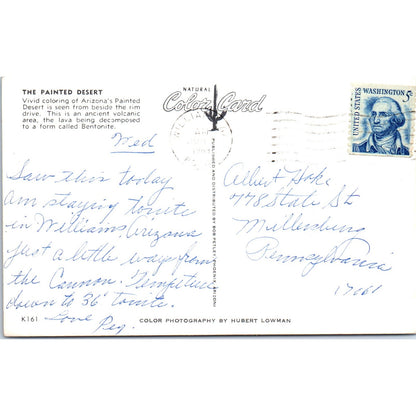 THE PAINTED DESERT
Vivid coloring of Arizona's Painted
Desert is seen from beside the rim
drive. This is an ancient volcanic
area, the lava being decomposed
to a form called Bentonite.
NATURAL
Color Card
UNITED STATES
WASHINGTON 5c
Wed
Saw this today
am staying tonite
in Williams, Arizona
just a little ways from
the Cannon. Tempeture
down to 36° tonite.
Love
Peg.
PUBLISHED AND DISTRIBUTED BY BOB PETLEY, PHOENIX, ARIZONA
Albert Hoke
778 State St
Millersburg
Pennsylvania
17061
K161
COLOR PHOTOGRAPHY BY HUBERT LOWMAN